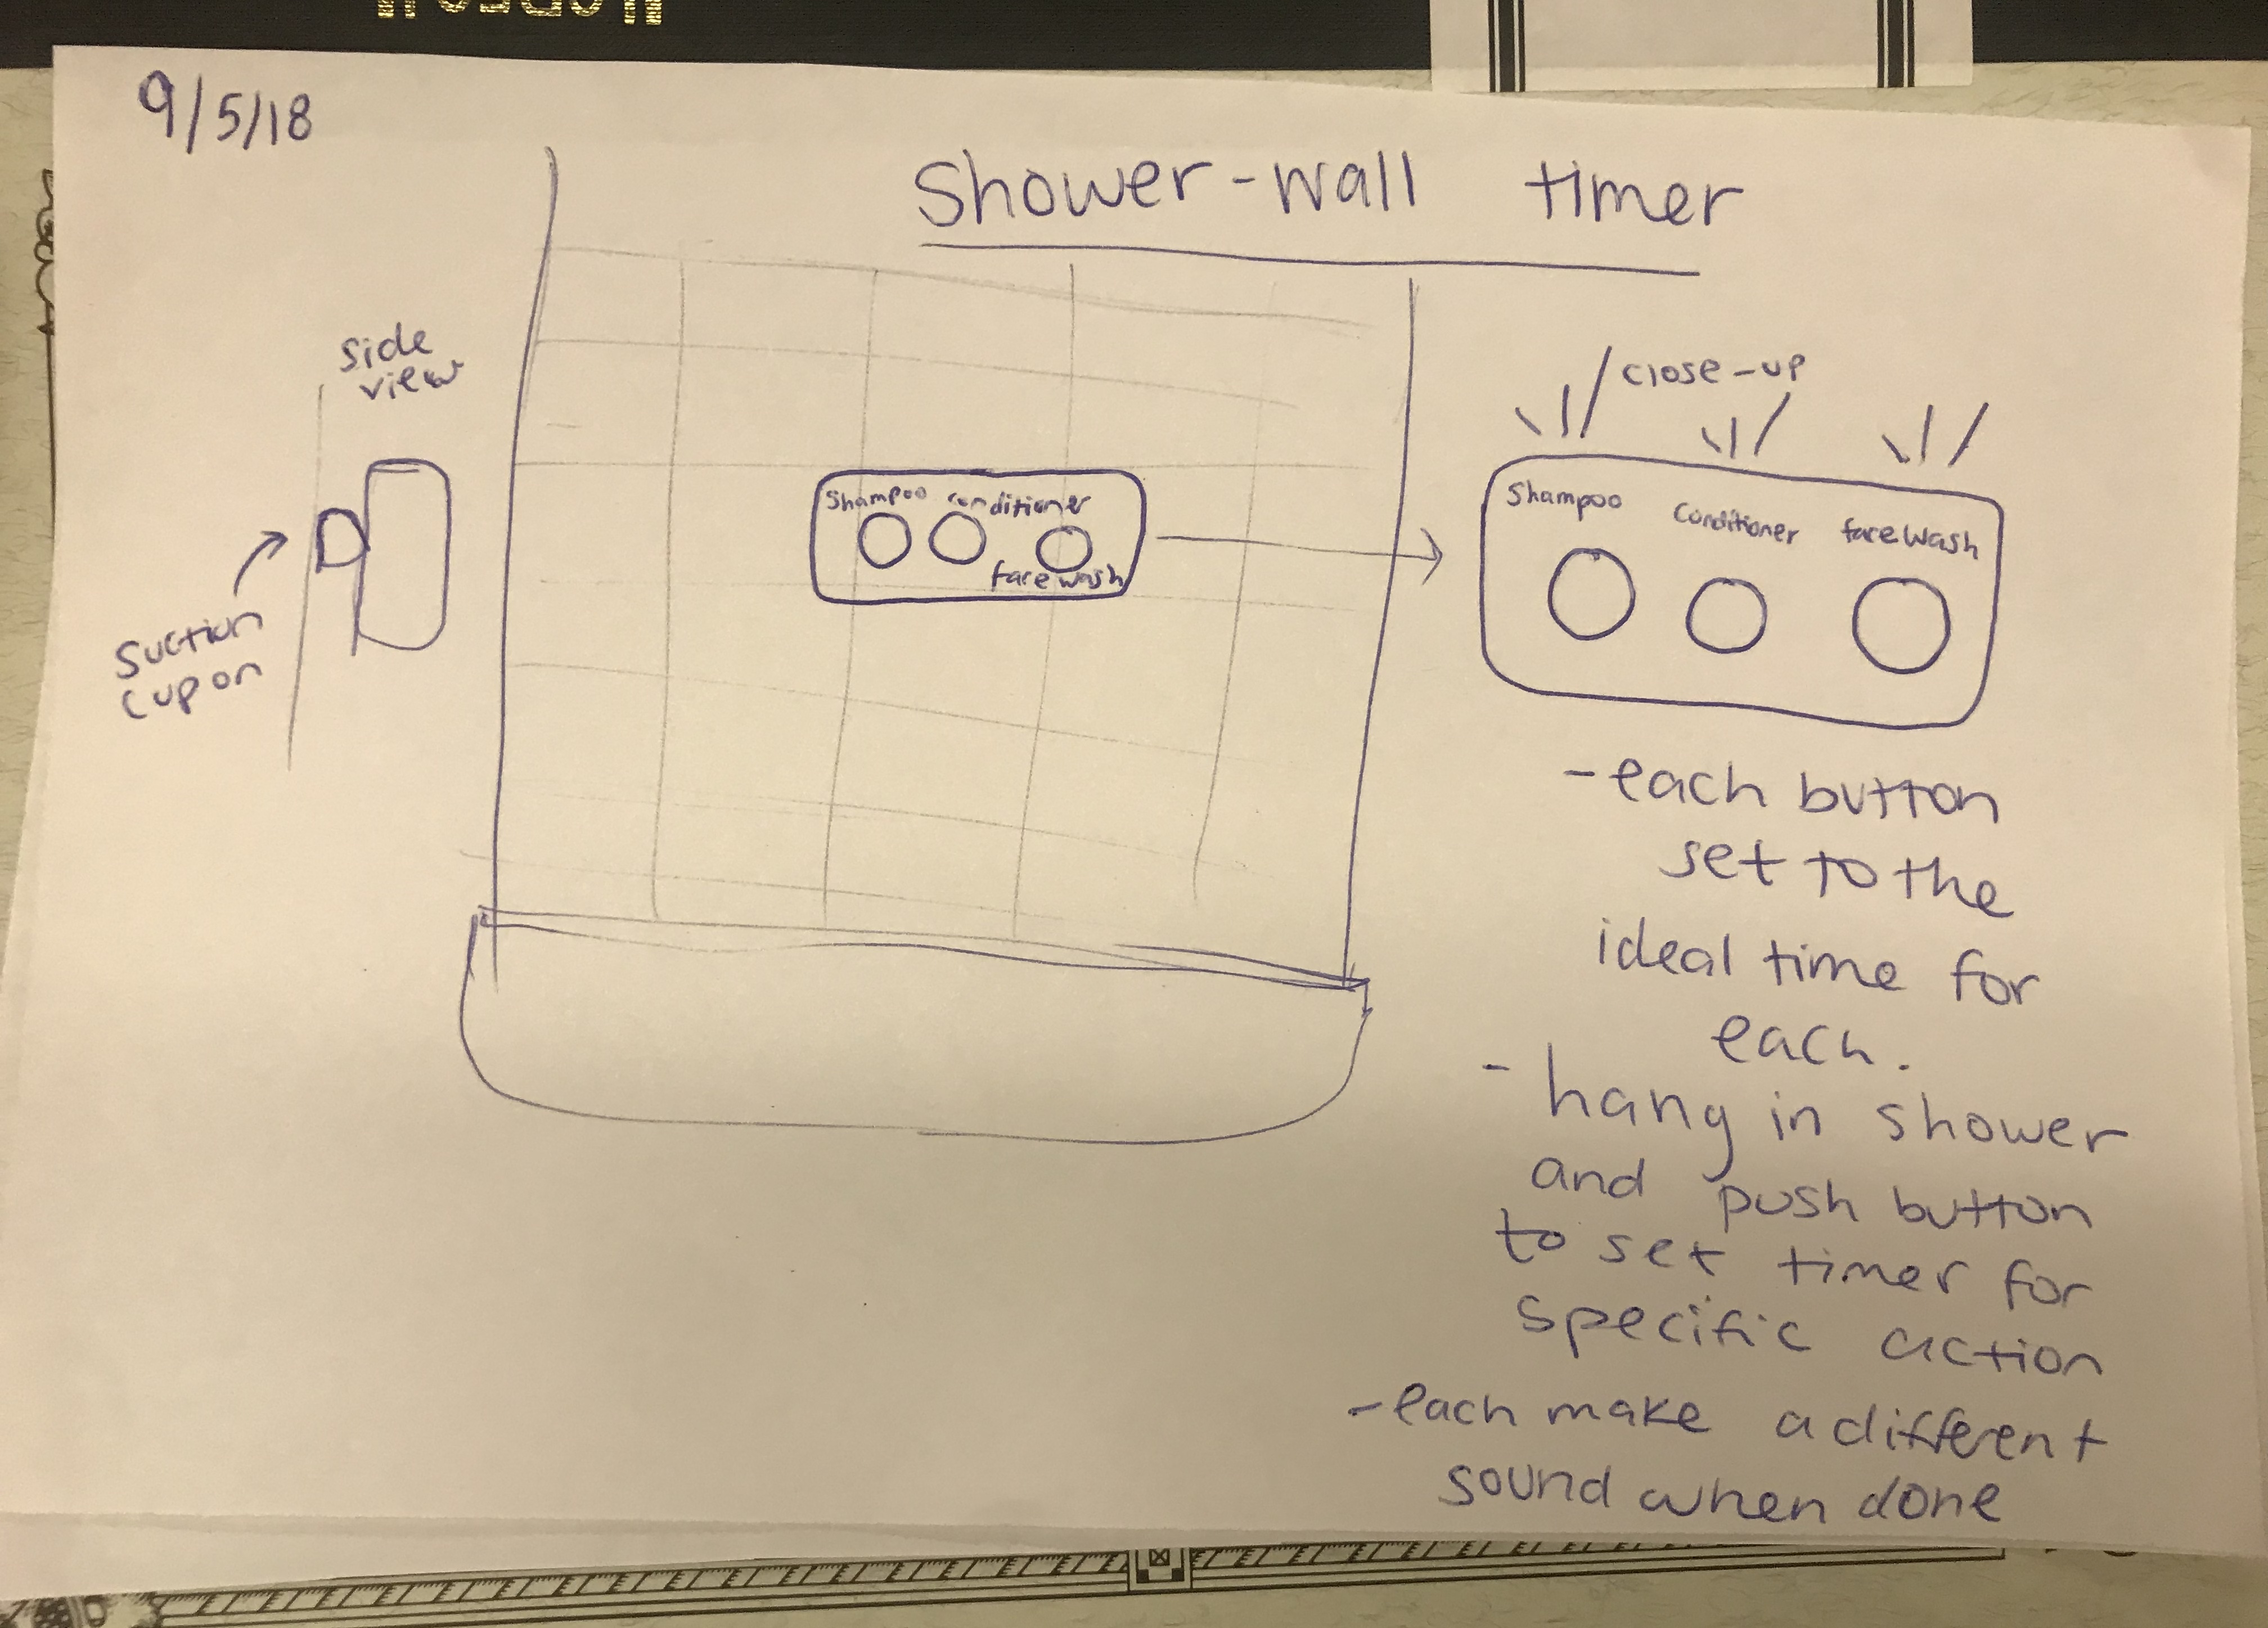 9/5/18
Shower-wall timer
side
view
suction
cup on
Shampoo conditioner
face wash
close-up
Shampoo Conditioner face wash
- each button
set to the
ideal time for
each.
- hang in shower
and push button
to set timer for
specific action
- each make a different
sound when done